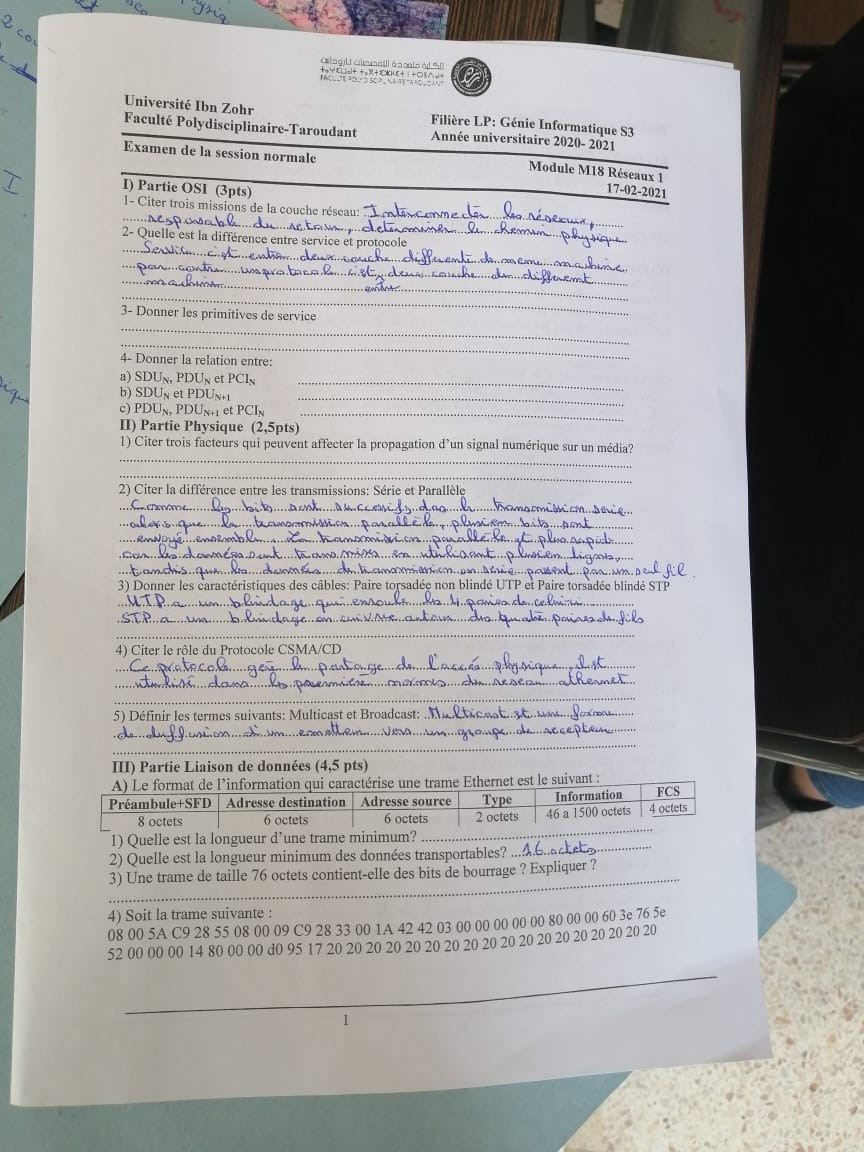 الكلية متعددة التخصصات تارودانت
FACULTÉ POLYDISCIPLINAIRE TAROUDANT
Université Ibn Zohr
Faculté Polydisciplinaire-Taroudant
Filière LP: Génie Informatique S3
Année universitaire 2020- 2021
Examen de la session normale
Module M18 Réseaux 1
17-02-2021
I) Partie OSI (3pts)
1- Citer trois missions de la couche réseau: Interconnecter les réseaux,
responsable du , déterminer le chemin physique
2- Quelle est la différence entre service et protocole
Service c'est entre deux couche différente de meme machine
par contre un protocole c'est entre deux couche de différent
machine
3- Donner les primitives de service
4- Donner la relation entre:
a) SDUN, PDUN et PCIN
b) SDUN et PDUN+1
c) PDUN, PDUN+1 et PCIN
II) Partie Physique (2,5pts)
1) Citer trois facteurs qui peuvent affecter la propagation d'un signal numérique sur un média?
2) Citer la différence entre les transmissions: Série et Parallèle
Comme les bits sont successifs das la transmission serie
alors que la transmission parallèle, plusien bits sont
envoyé ensemble. La transmission parallèle et plus rapide
car les données sont transmises en utilisant plusien lignes,
tandis que les données de transmission en série passent par un seul fil.
3) Donner les caractéristiques des câbles: Paire torsadée non blindé UTP et Paire torsadée blindé STP
UTP a un blindage qui enroule les 4 paires de celui-ci
STP a un blindage en cuivre autour des quatre paires de fils
4) Citer le rôle du Protocole CSMA/CD
Ce protocole gère le partage de l'accés physique, Il et
utilisé dans les première normes du reseau athernet
5) Définir les termes suivants: Multicast et Broadcast: Multicast et une forme
de duffusion d'un emetteur vers un groupe de recepteur
III) Partie Liaison de données (4,5 pts)
A) Le format de l'information qui caractérise une trame Ethernet est le suivant :
Préambule+SFD Adresse destination Adresse source Type Information FCS
8 octets 6 octets 6 octets 2 octets 46 a 1500 octets 4 octets
1) Quelle est la longueur d'une trame minimum?
2) Quelle est la longueur minimum des données transportables? 16 octets
3) Une trame de taille 76 octets contient-elle des bits de bourrage ? Expliquer ?
4) Soit la trame suivante :
08 00 5A C9 28 55 08 00 09 C9 28 33 00 1A 42 42 03 00 00 00 00 00 80 00 00 60 3e 76 5e
52 00 00 00 14 80 00 00 d0 95 17 20 20 20 20 20 20 20 20 20 20 20 20 20 20 20 20 20
1